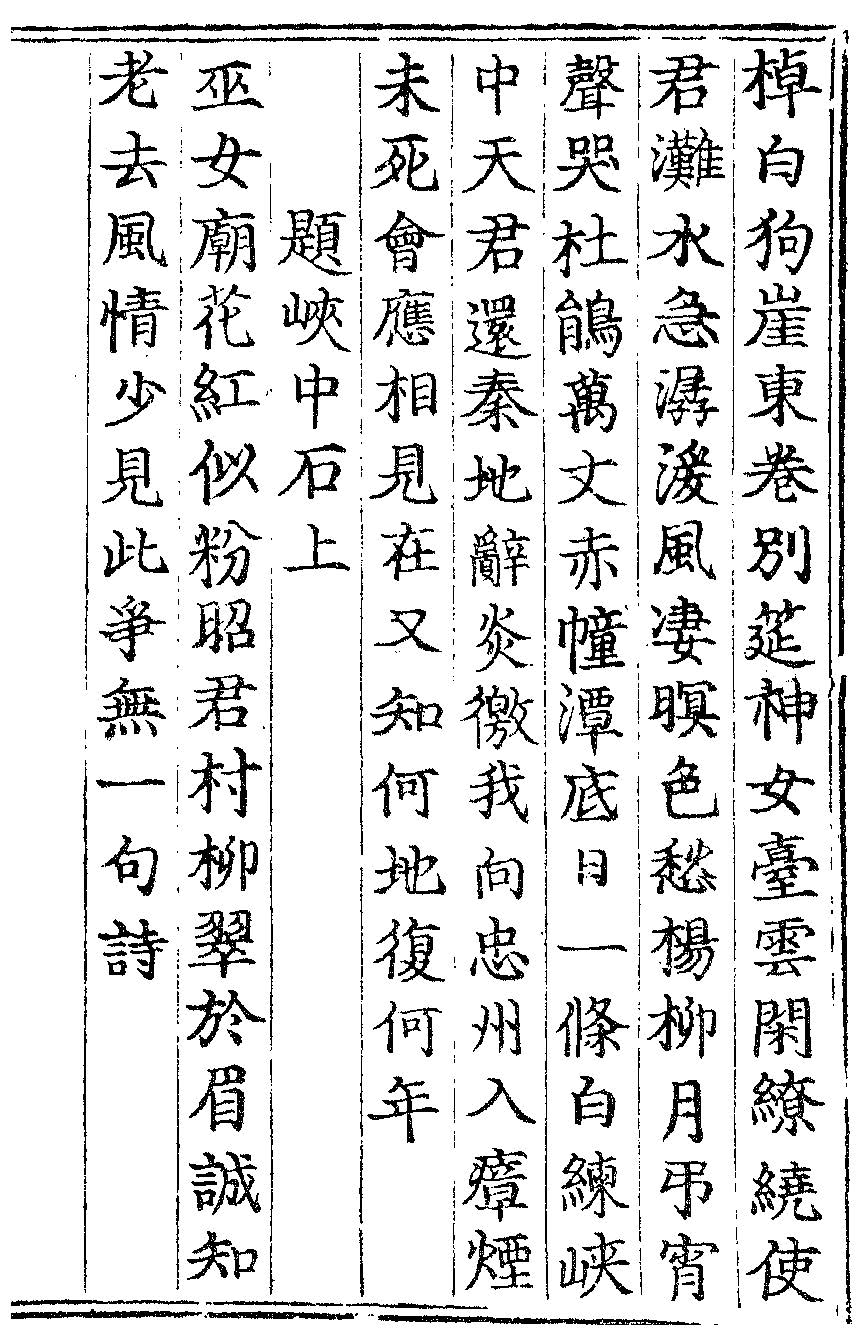 棹白狗崖東卷別莚神女臺雲閑繚繞使
君灘水急潺湲風凄暝色愁楊柳月弔宵
聲哭杜鵑萬丈赤幢潭底日一條白練峽
中天君還秦地辭炎徼我向忠州入瘴煙
未死會應相見在又知何地復何年
題峽中石上
巫女廟花紅似粉昭君村柳翠於眉誠知
老去風情少見此爭無一句詩